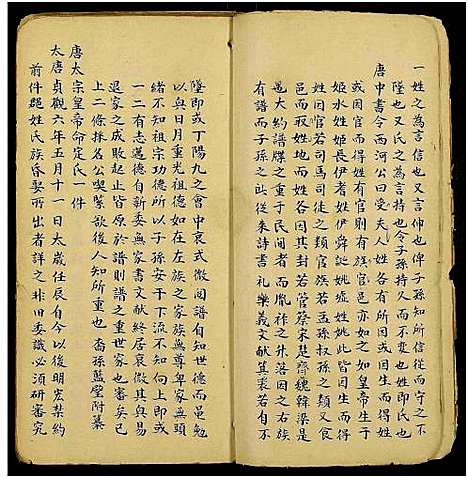 一姓之為言信也又言伸也俾子孫知所信從而守之不
墜也又氏之為言持也令子孫持久而不变也姓即氏也
唐中書令西河公曰受夫人姓各有所因或因生而得姓
邑因官而得姓官則有族官邑亦如之如皇帝生于
姬水姓姬長伊者姓伊舜誕姚墟姓姚此皆因生而得
姓因官若司馬司徒之類官族若孟孫之類又食
采而胙姓地而姓各因其封若管蔡宋楚齊魏韓梁是
邑大約譜牒之重于民間者而胤祚之升落因之右族
有譜而子孫之所從來詩書礼樂義文献箕裘若自不
墜即或丁陽九之會中衰式微閲譜自知世德而黽勉
以與日月重光祖德如在左族之家族無尊卑家無頭
緒不知祖宗功德所以子孫安于下流不知向上即或
一二有志邁德自新委無家書文献終居衰微其興与易
退家之成敗起止皆原於譜則譜之重世家也番矣已
上二條採名公喫緊欲後人知所重也 裔孫藍壁附纂
唐太宗皇帝命定氏一件
太唐貞觀六年五月十一日太歲任辰自今以後明宏禁約
前件郡姓氏族昏娶所出者詳之非旧委識必須研審究